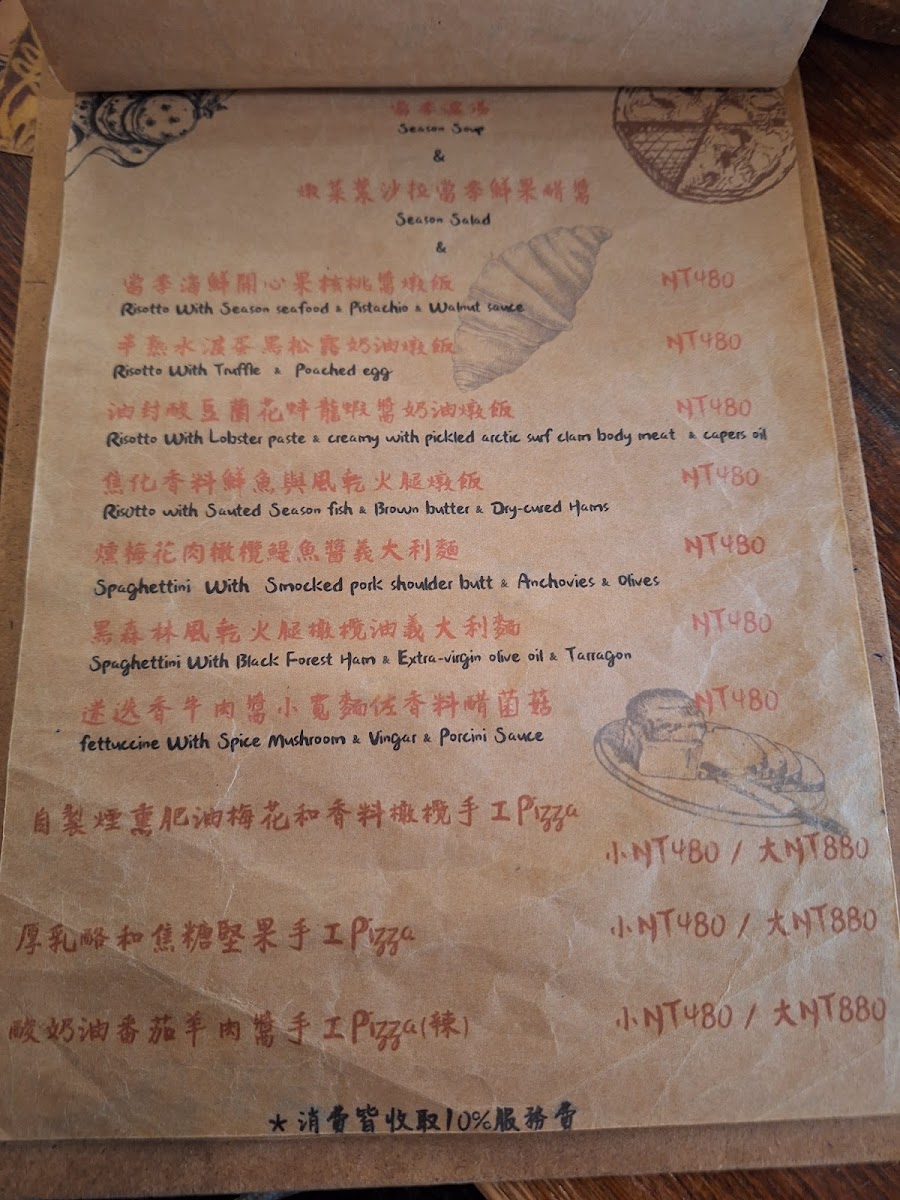 當季濃湯
Season Soup
&
嫩菜葉沙拉當季鮮果醋醬
Season Salad
&
當季海鮮開心果核桃醬燉飯 NT480
Risotto With Season seafood & Pistachio & Walnut sauce
半熟水波蛋黑松露奶油燉飯 NT480
Risotto With Truffle & Poached egg
油封酸豆蘭花蚌龍蝦醬奶油燉飯 NT480
Risotto With Lobster paste & creamy with pickled arctic surf clam body meat & capers oil
焦化香料鮮魚與風乾火腿燉飯 NT480
Risotto with Sauted Season fish & Brown butter & Dry-cured Hams
燻梅花肉橄欖鯷魚醬義大利麵 NT480
Spaghettini With Smocked pork shoulder butt & Anchovies & Olives
黑森林風乾火腿橄欖油義大利麵 NT480
Spaghettini With Black Forest Ham & Extra-virgin olive oil & Tarragon
迷迭香牛肉醬小寬麵佐香料醋菌菇 NT480
fettuccine With Spice Mushroom & Vingar & Porcini Sauce
自製煙熏肥油梅花和香料橄欖手工Pizza
小NT480 / 大NT880
厚乳酪和焦糖堅果手工Pizza 小NT480 / 大NT880
酸奶油番茄羊肉醬手工Pizza(辣) 小NT480 / 大NT880
★消費皆收取10%服務費